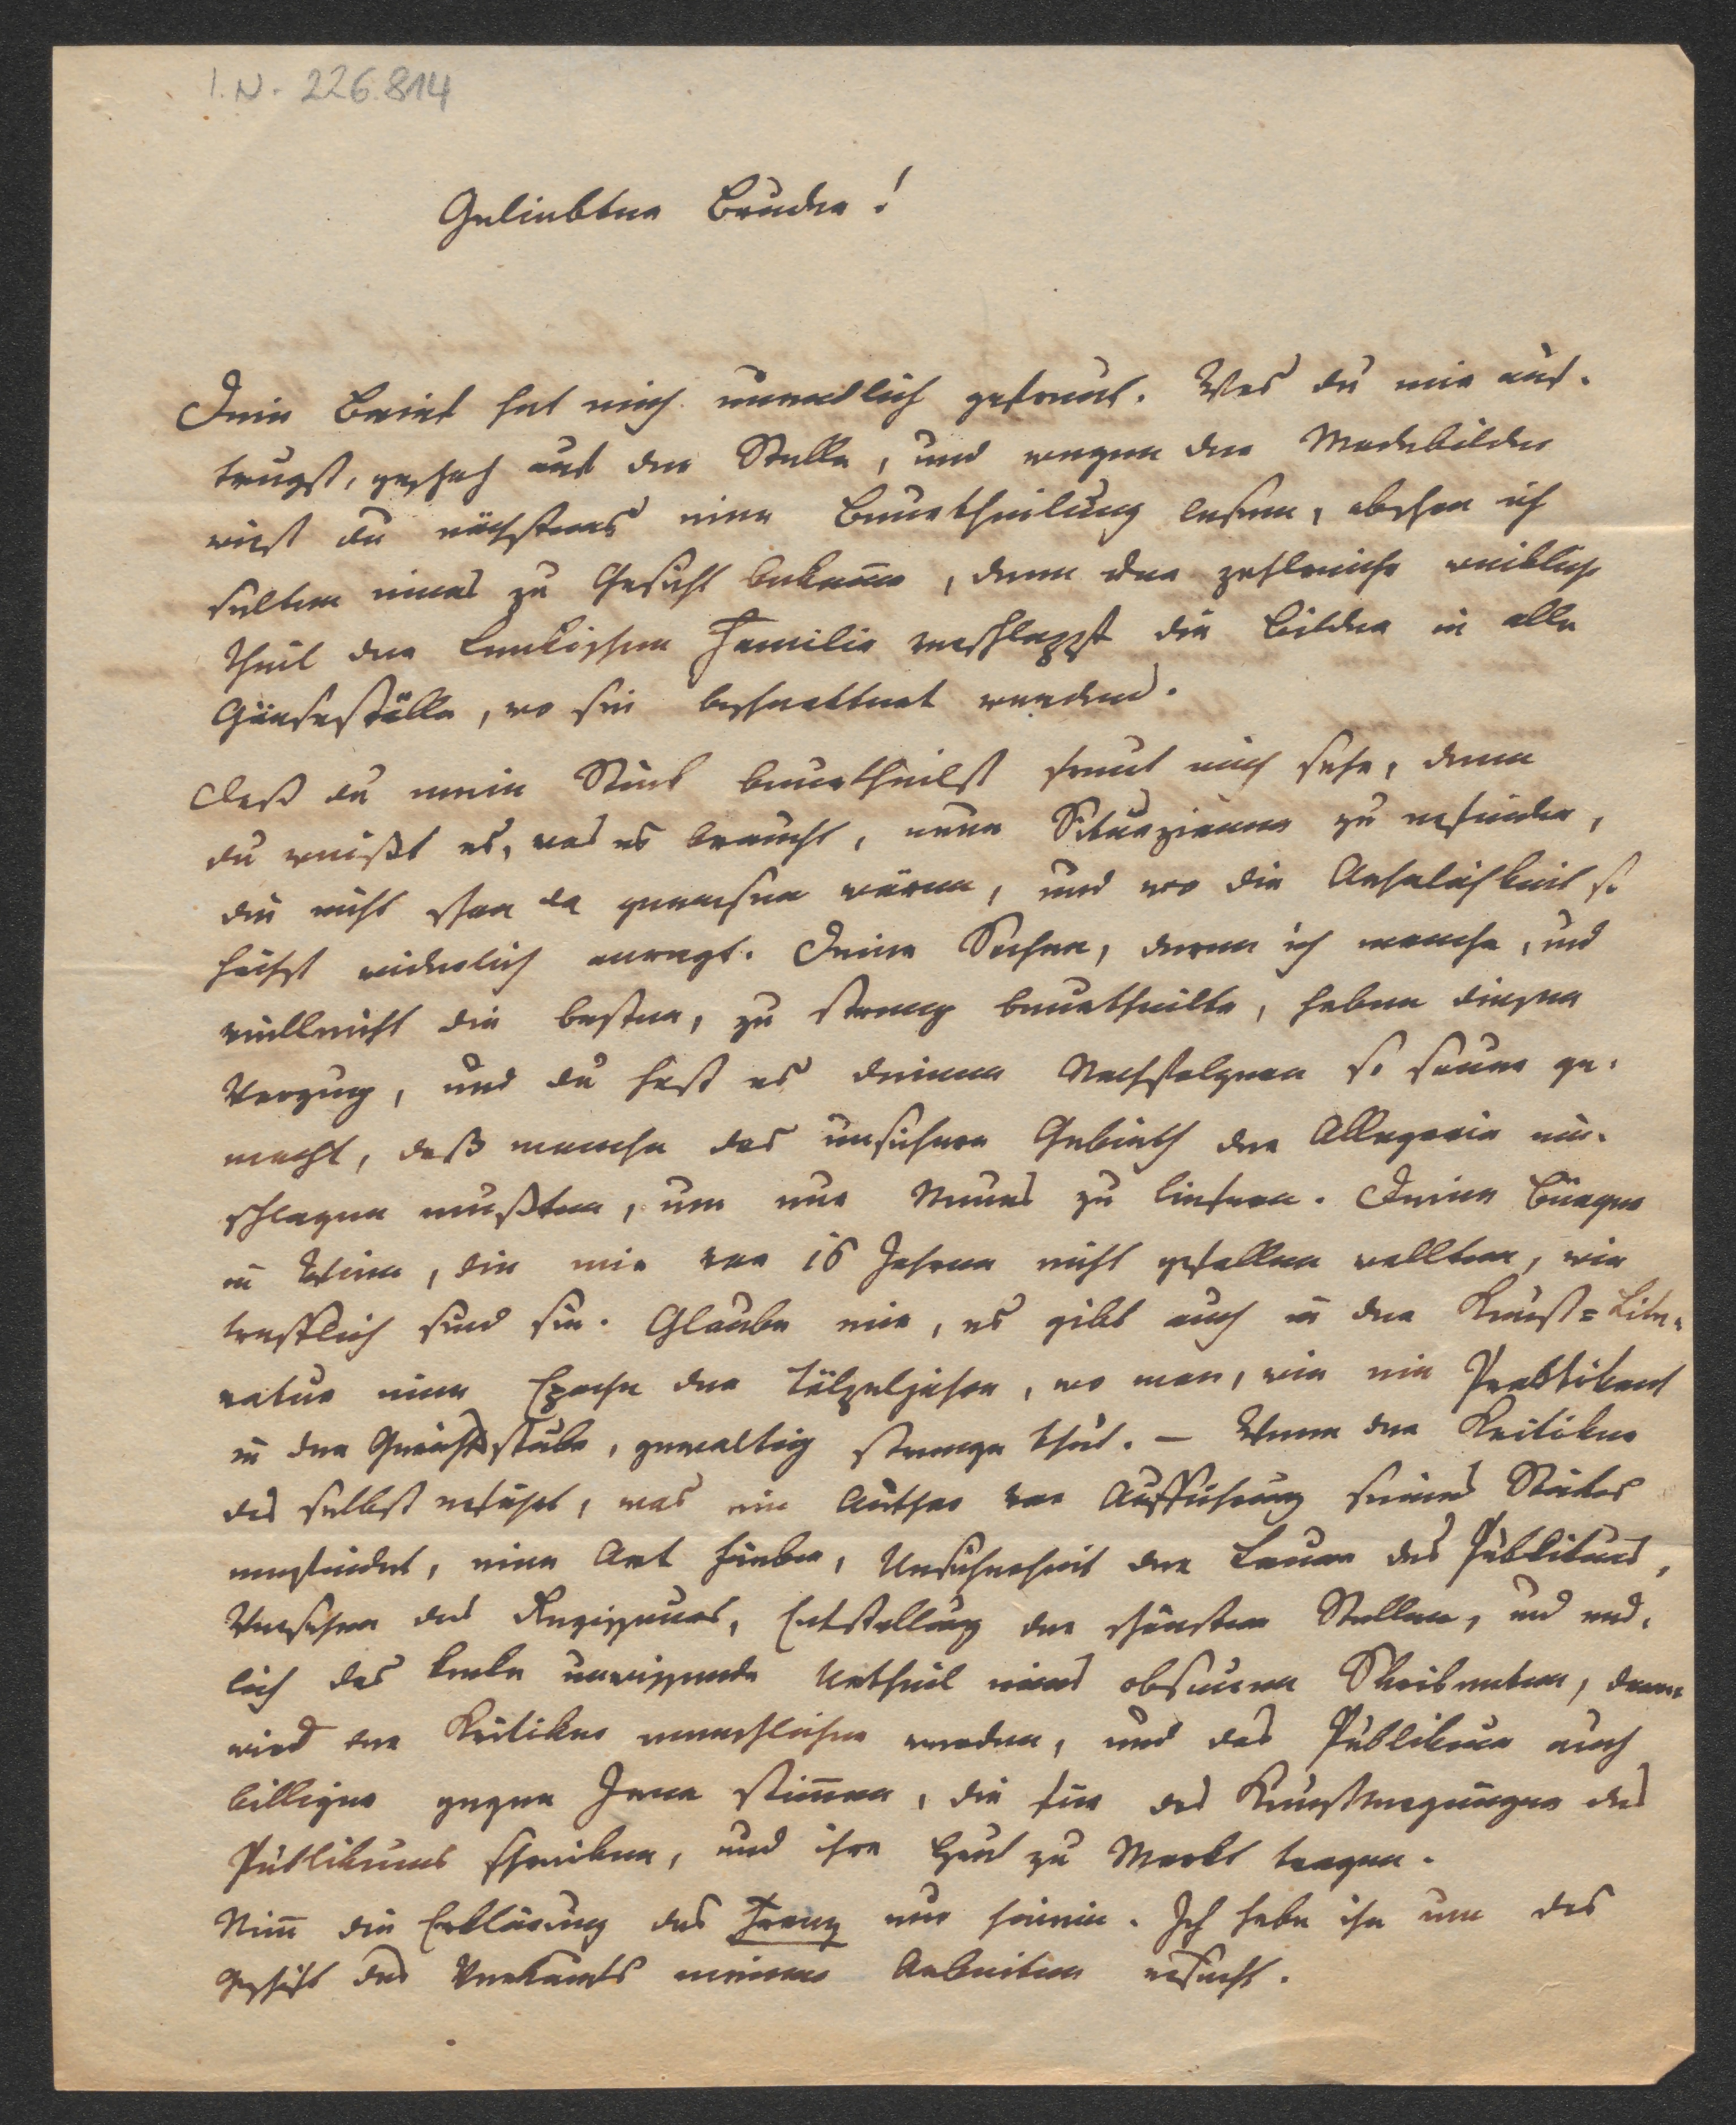 I.N. 226.814
Geliebter Bruder!
Dein Brief hat mich unendlich gefreut. Was du mir auf-
trugst, geschah auf der Stelle, und wegen der Modebilder
wirst du nächstens eine Beurtheilung lesen, obschon ich
selten eines zu Gesicht bekom̄e, denn der zahlreiche weibliche
Theil der Familie verschleppt die Bilder in alle
Gänseställe, wo sie beschnattert werden.
Daß du mein Stück beurtheilst freut mich sehr, denn
du weißt es, was es braucht, neue Situazionen zu erfinden,
die nicht schon da gewesen wären, und wo die Aehnlichkeit so
höchst widerlich anregt. Deine Sachen, deren ich manche, und
vielleicht die besten, zu streng beurtheilte, haben diesen
Vorzug, und du hast es deinen Nachfolgern so sauer ge-
macht, daß manche das unsichere Gebieth der Allegorie ein-
schlagen mußten, um nur Neues zu liefern. Deine Bürger
in Wien, die mir vor 16 Jahren nicht gefallen wollten, wie
trefflich sind sie. Glaube mir, es gibt auch in der Kunst=Lite-
ratur eine Epoche der Tölpeljahre, wo man, wie ein Praktikant
in der Gerichtsstube, gewaltig strenge thut. – Wenn der Kritiker
das selbst erfährt, was ein Author vor Aufführung seines Stückes
empfindet, eine Art Fieber, Unsicherheit der Laune des Publikums,
Versehen des Regisseurs, Entstellung der schönsten Stellen, und end-
lich das kecke unwissende Urtheil eines obscuren Skribenten, dann
wird der Kritiker menschlicher werden, und das Publikum auch
billiger gegen Jene stim̄en, die für das Kunstvergnügen des
Publikums schreiben, und ihre Haut zu Markt tragen.
Nim̄ die Erklärung des Franz nur hinein. Ich habe ihn um das
Geschäft des Verkaufs meiner Arbeiten ersucht.